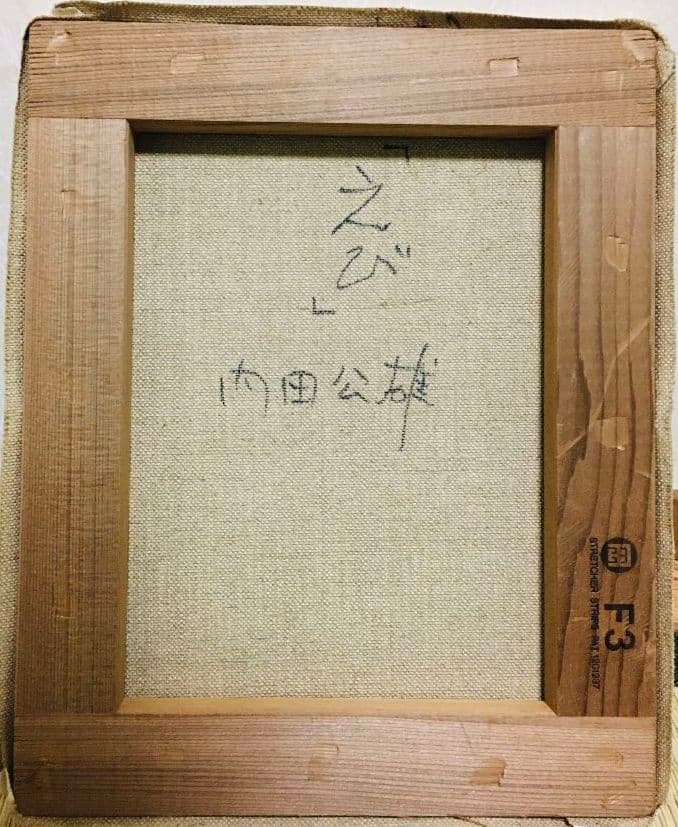 「えび」
内田公雄
F3
STRETCHER STRIPS PAT.1201237